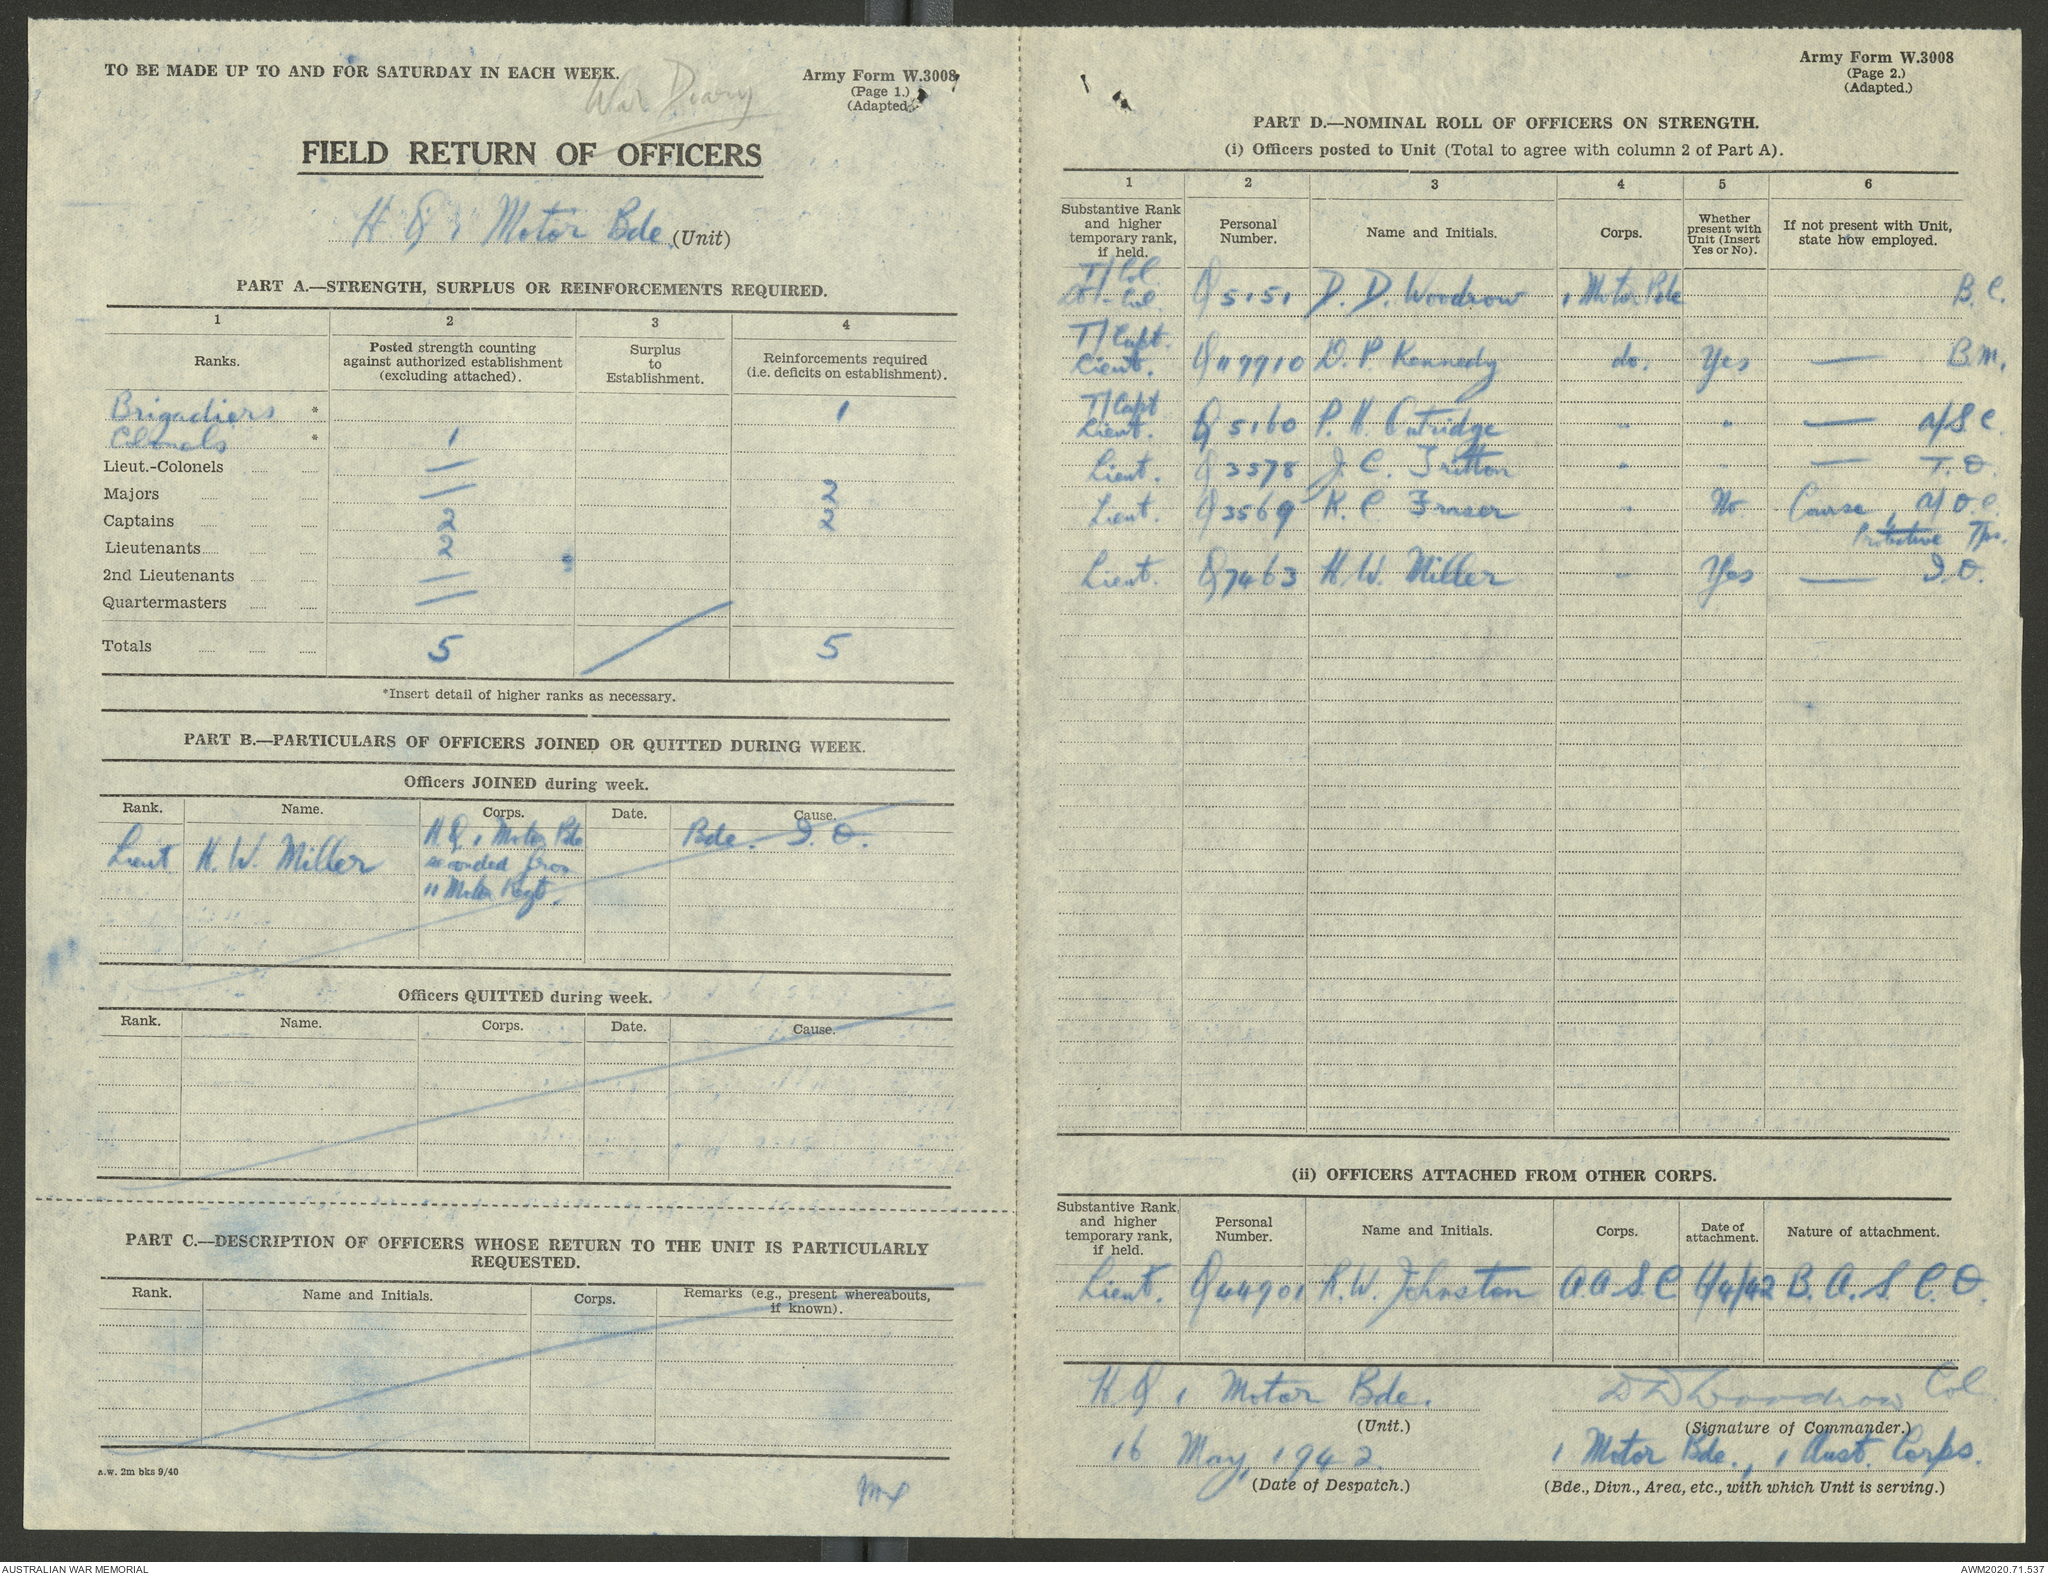 TO BE MADE UP TO AND FOR SATURDAY IN EACH WEEK.
War Diary
Army Form W.3008
(Page 1.)
(Adapted.)
FIELD RETURN OF OFFICERS
H Q 1 Motor Bde (Unit)
PART A.—STRENGTH, SURPLUS OR REINFORCEMENTS REQUIRED.
1 2 3 4
Ranks. Posted strength counting against authorized establishment (excluding attached). Surplus to Establishment. Reinforcements required (i.e. deficits on establishment).
Brigadiers * 1
Colonels * 1
Lieut.-Colonels —
Majors — 2
Captains 2 2
Lieutenants 2
2nd Lieutenants —
Quartermasters —
Totals 5 5
*Insert detail of higher ranks as necessary.
PART B.—PARTICULARS OF OFFICERS JOINED OR QUITTED DURING WEEK.
Officers JOINED during week.
Rank. Name. Corps. Date. Cause.
Lieut H. W. Miller H Q 1 Motor Bde seconded from 11 Motor Regt. Bde. I. O.
Officers QUITTED during week.
Rank. Name. Corps. Date. Cause.
PART C.—DESCRIPTION OF OFFICERS WHOSE RETURN TO THE UNIT IS PARTICULARLY
REQUESTED.
Rank. Name and Initials. Corps. Remarks (e.g., present whereabouts, if known).
A.W. 2m bks 9/40
Army Form W.3008
(Page 2.)
(Adapted.)
PART D.—NOMINAL ROLL OF OFFICERS ON STRENGTH.
(i) Officers posted to Unit (Total to agree with column 2 of Part A).
1 2 3 4 5 6
Substantive Rank and higher temporary rank, if held. Personal Number. Name and Initials. Corps. Whether present with Unit (Insert Yes or No). If not present with Unit, state how employed.
T/Col.
Lt-Col Q5151 D. D. Woodrow 1 Motor Bde B. C.
T/Capt.
Lieut. Q117910 D. P. Kennedy do. Yes — B.M.
T/Capt
Lieut. Q5160 P. H. Outridge " " — a/S C.
Lieut. Q3378 J. C. Tritton " " — T. O.
Lieut. Q3569 K. C. Fraser " No Course, a/ O.C.
Protective Tps.
Lieut. Q7463 H. W. Miller " Yes — I. O.
(ii) OFFICERS ATTACHED FROM OTHER CORPS.
Substantive Rank, and higher temporary rank, if held. Personal Number. Name and Initials. Corps. Date of attachment. Nature of attachment.
Lieut. Q44901 R. W. Johnston A. A. S. C 4/42 B. A. S. C. O.
H Q 1 Motor Bde. D D Woodrow Col.
(Unit.) (Signature of Commander.)
16 May, 1942. 1 Motor Bde., 1 Aust. Corps.
(Date of Despatch.) (Bde., Divn., Area, etc., with which Unit is serving.)
AUSTRALIAN WAR MEMORIAL
AWM2020.71.537